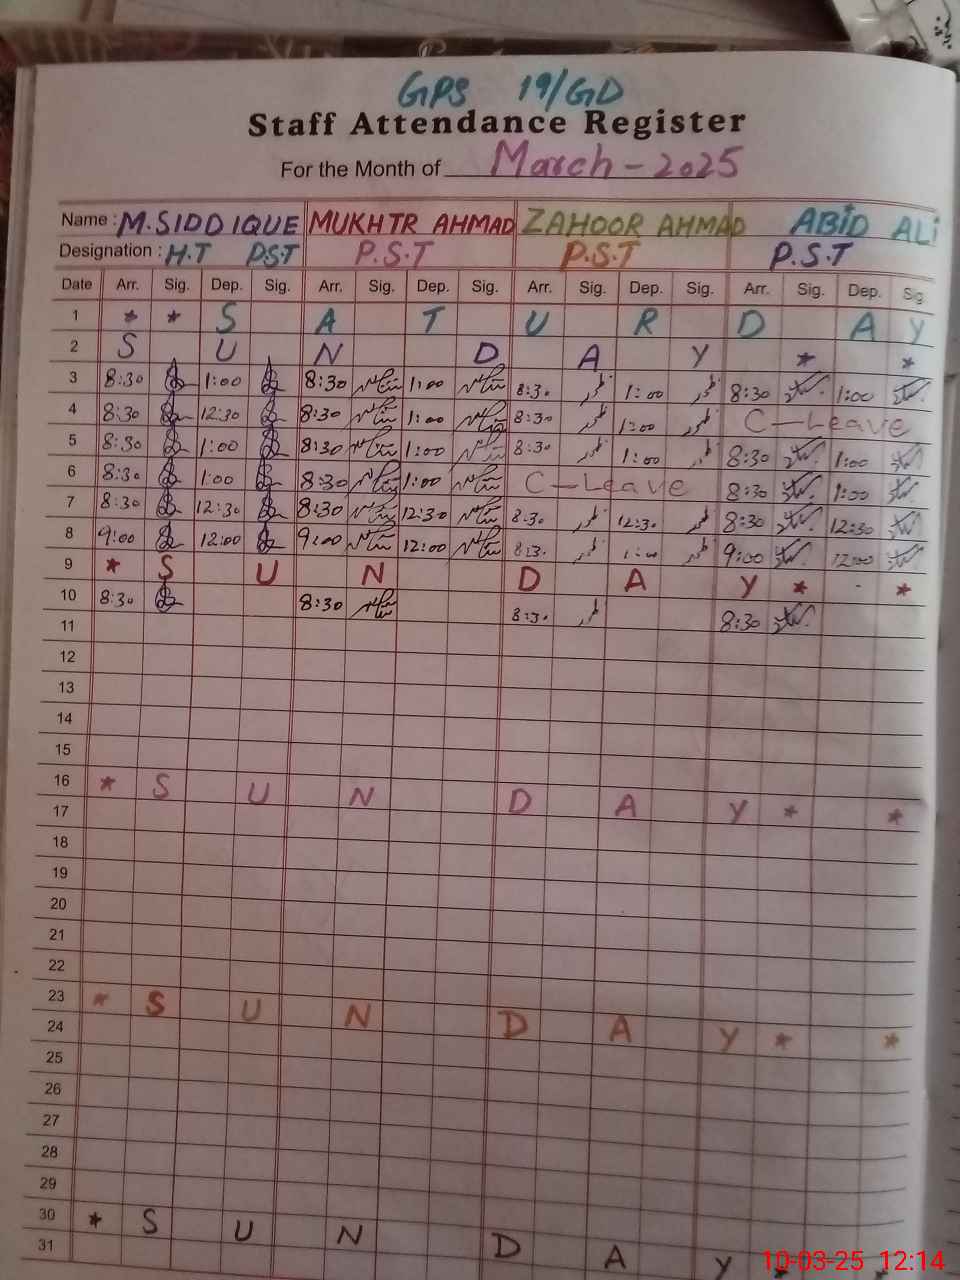 GPS 19/GD
Staff Attendance Register
For the Month of March - 2025
Name : M.SIDDIQUE MUKHTR AHMAD ZAHOOR AHMAD ABID ALi
Designation : H.T P.S.T P.S.T P.S.T P.S.T
Date Arr. Sig. Dep. Sig. Arr. Sig. Dep. Sig. Arr. Sig. Dep. Sig. Arr. Sig. Dep. Sig.
1 * * S A T U R D A Y
2 S U N D A Y * *
3 8:30 1:00 8:30 1:00 8:30 1:00 8:30 1:00
4 8:30 12:30 8:30 1:00 8:30 1:00 C-Leave
5 8:30 1:00 8:30 1:00 8:30 1:00 8:30 1:00
6 8:30 1:00 8:30 1:00 C-Leave 8:30 1:00
7 8:30 12:30 8:30 12:30 8:30 12:30 8:30 12:30
8 9:00 12:00 9:00 12:00 9:00 12:00
9 * S U N D A Y * *
10 8:30 8:30 8:30 8:30
11
12
13
14
15
16 * S U N D A Y * *
17
18
19
20
21
22
23 * S U N D A Y * *
24
25
26
27
28
29
30 * S U N D A Y * *
31
10-03-25 12:14